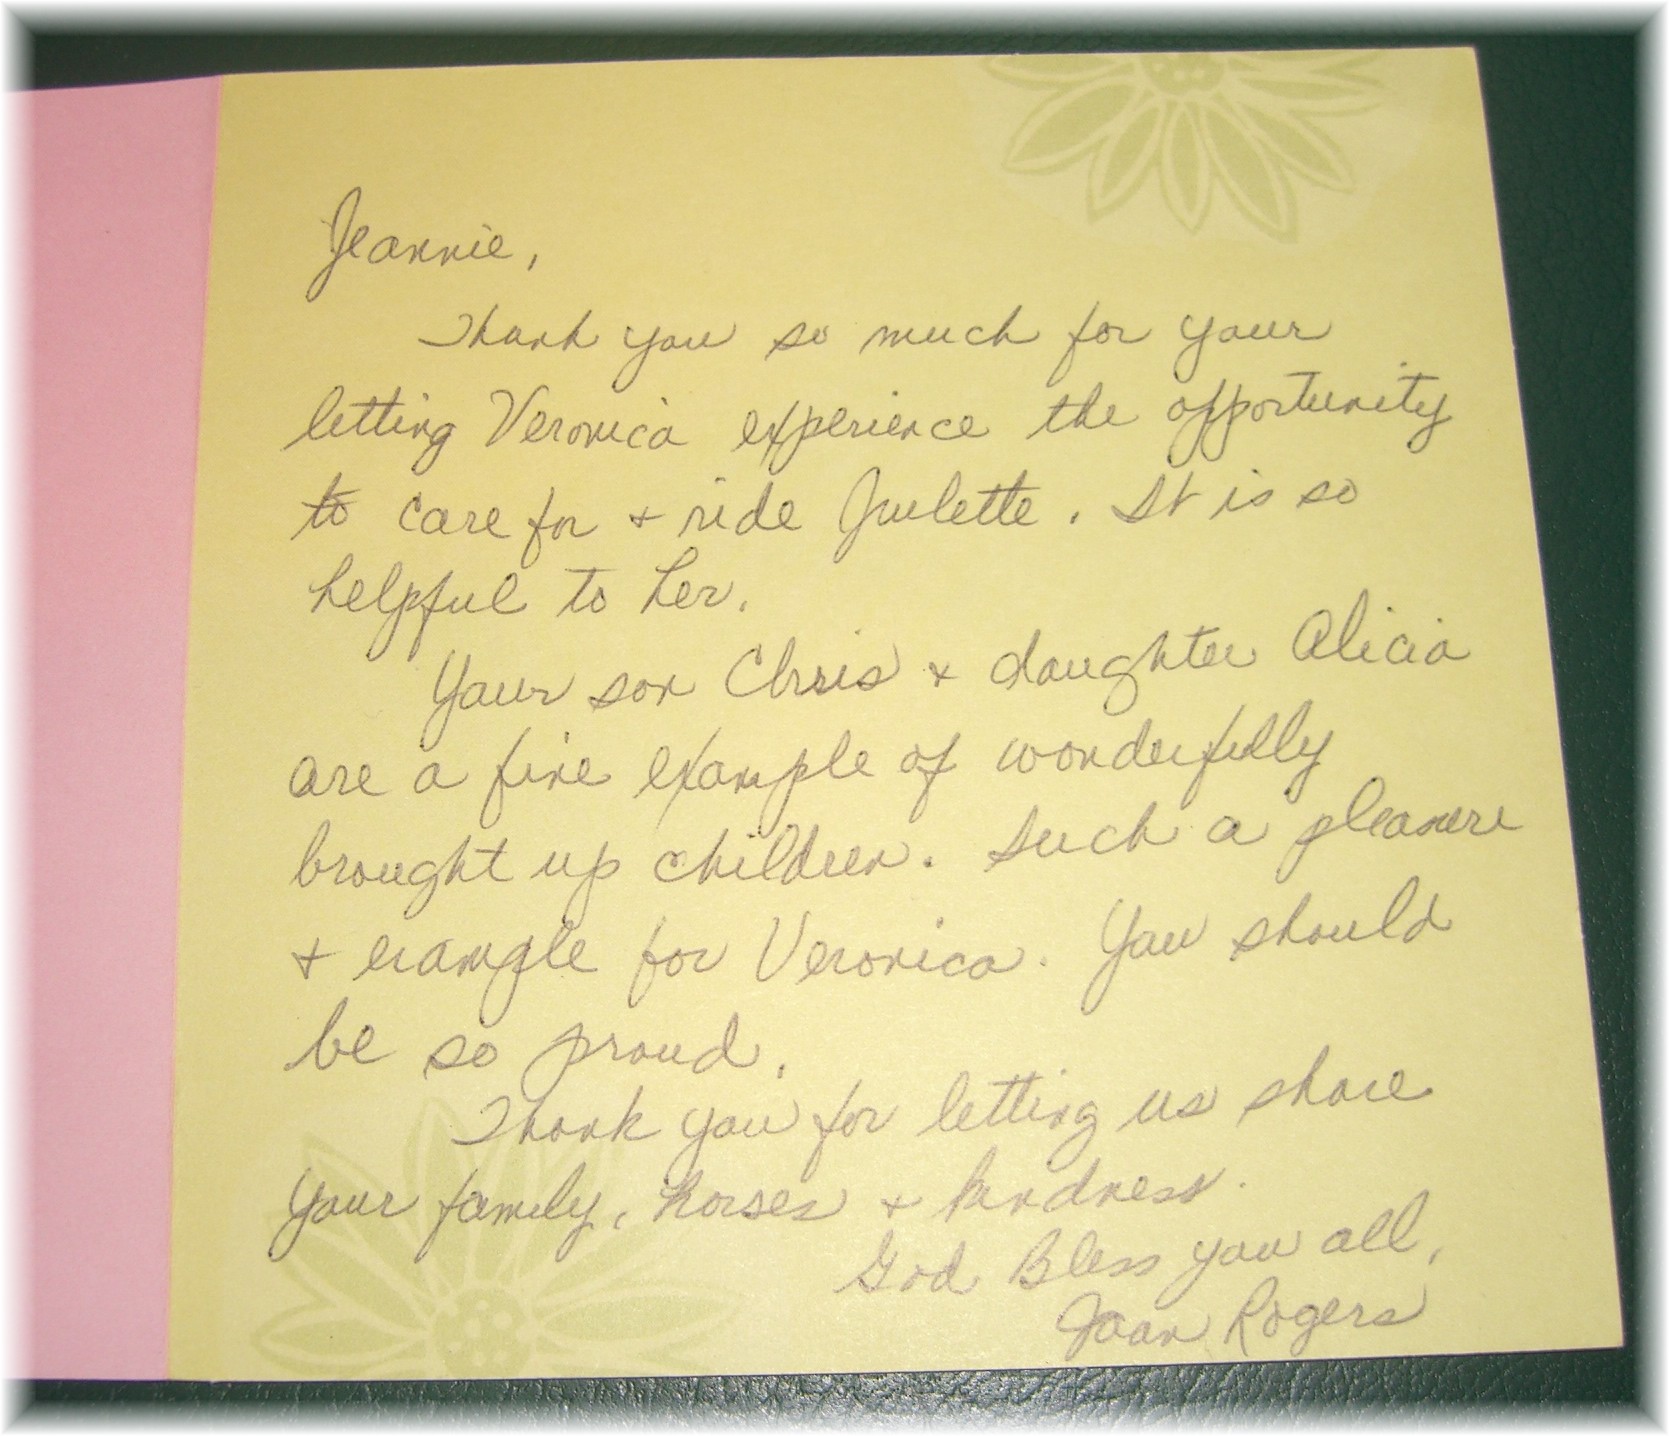 Jeannie,
Thank you so much for your
letting Veronica experience the opportunity
to care for + ride Juilette. It is so
helpful to her.
Your son Chris + daughter Alicia
are a fine example of wonderfully
brought up children. Such a pleasure
+ example for Veronica. You should
be so proud.
Thank you for letting us share
your family, horses + kindness.
God Bless you all,
Joan Rogers